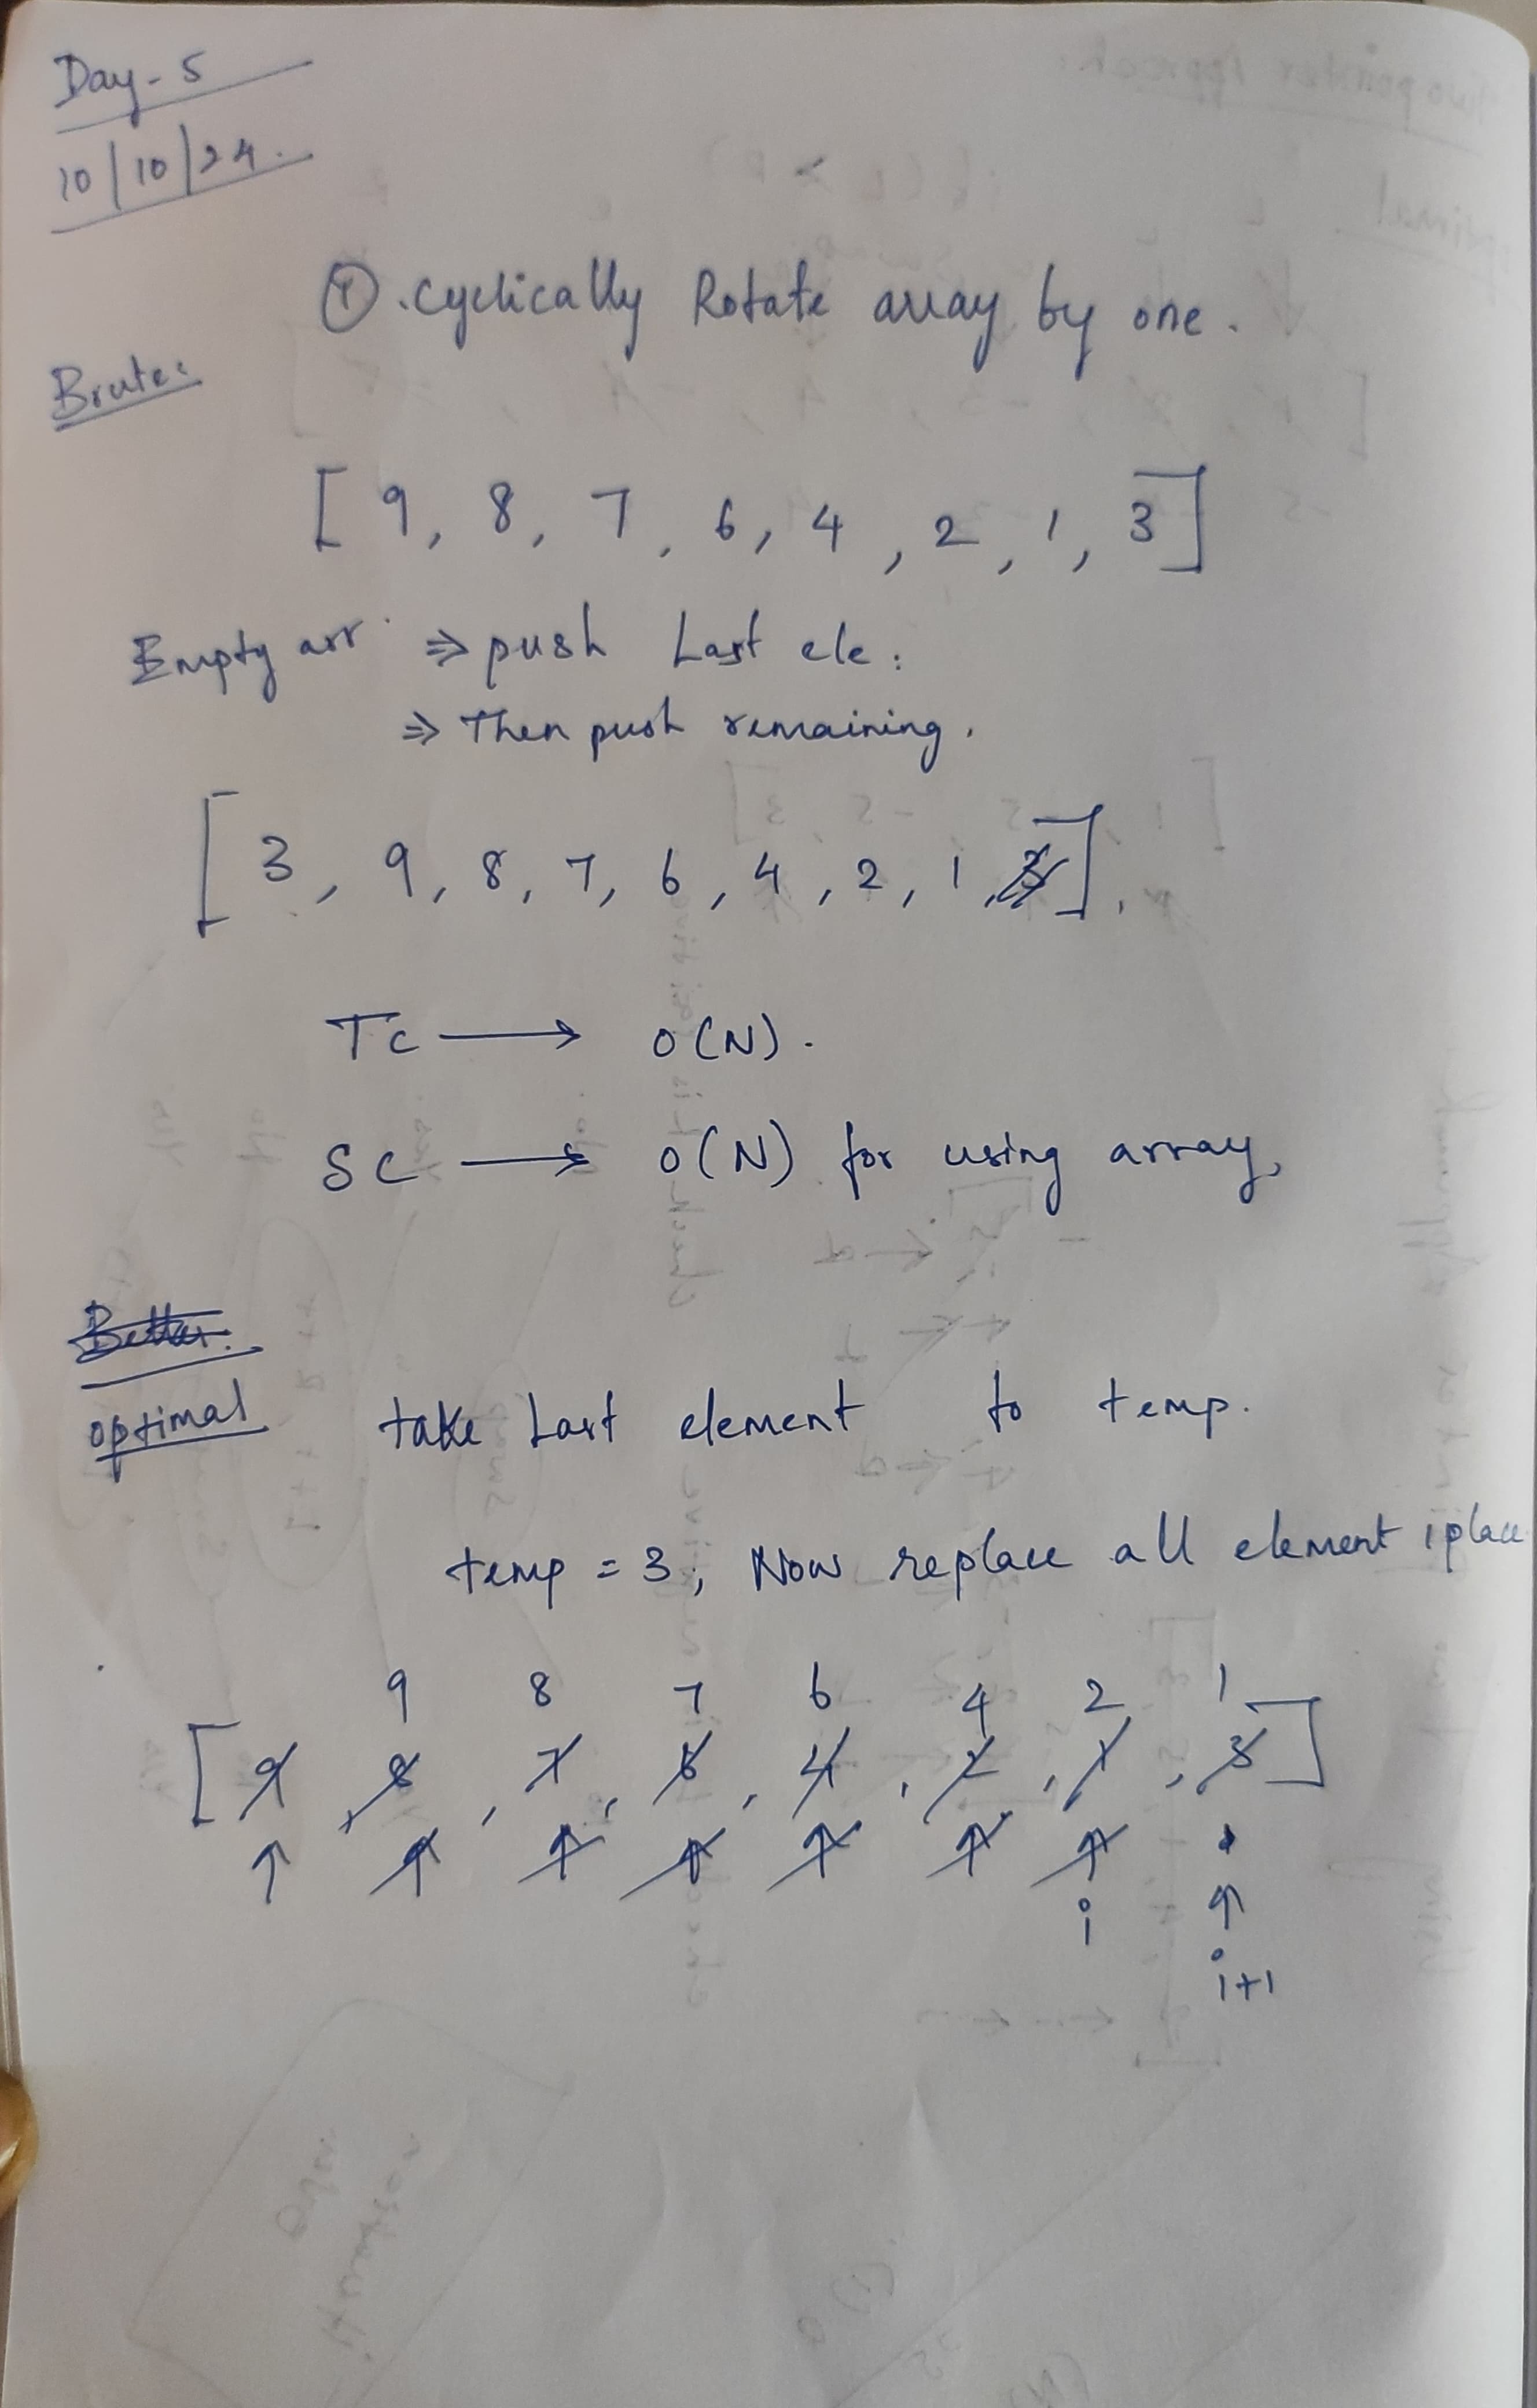 Day-5
10/10/24.
①. Cyclically Rotate array by one.
Brute:
[ 9, 8, 7, 6, 4, 2, 1, 3 ]
Empty arr. ⇒ push Last ele:
⇒ Then push remaining.
[ 3, 9, 8, 7, 6, 4, 2, 1, 3 ].
TC ⟶ O(N).
SC ⟶ O(N) for using array,
Better.
optimal take Last element to temp.
temp = 3, Now replace all element 1 place
9 8 7 6 4 2 1
[ 9, 8, 7, 6, 4, 2, 1, 3 ]
↑ ↑ ↑ ↑ ↑ ↑ ↑ ↑
i
i+1